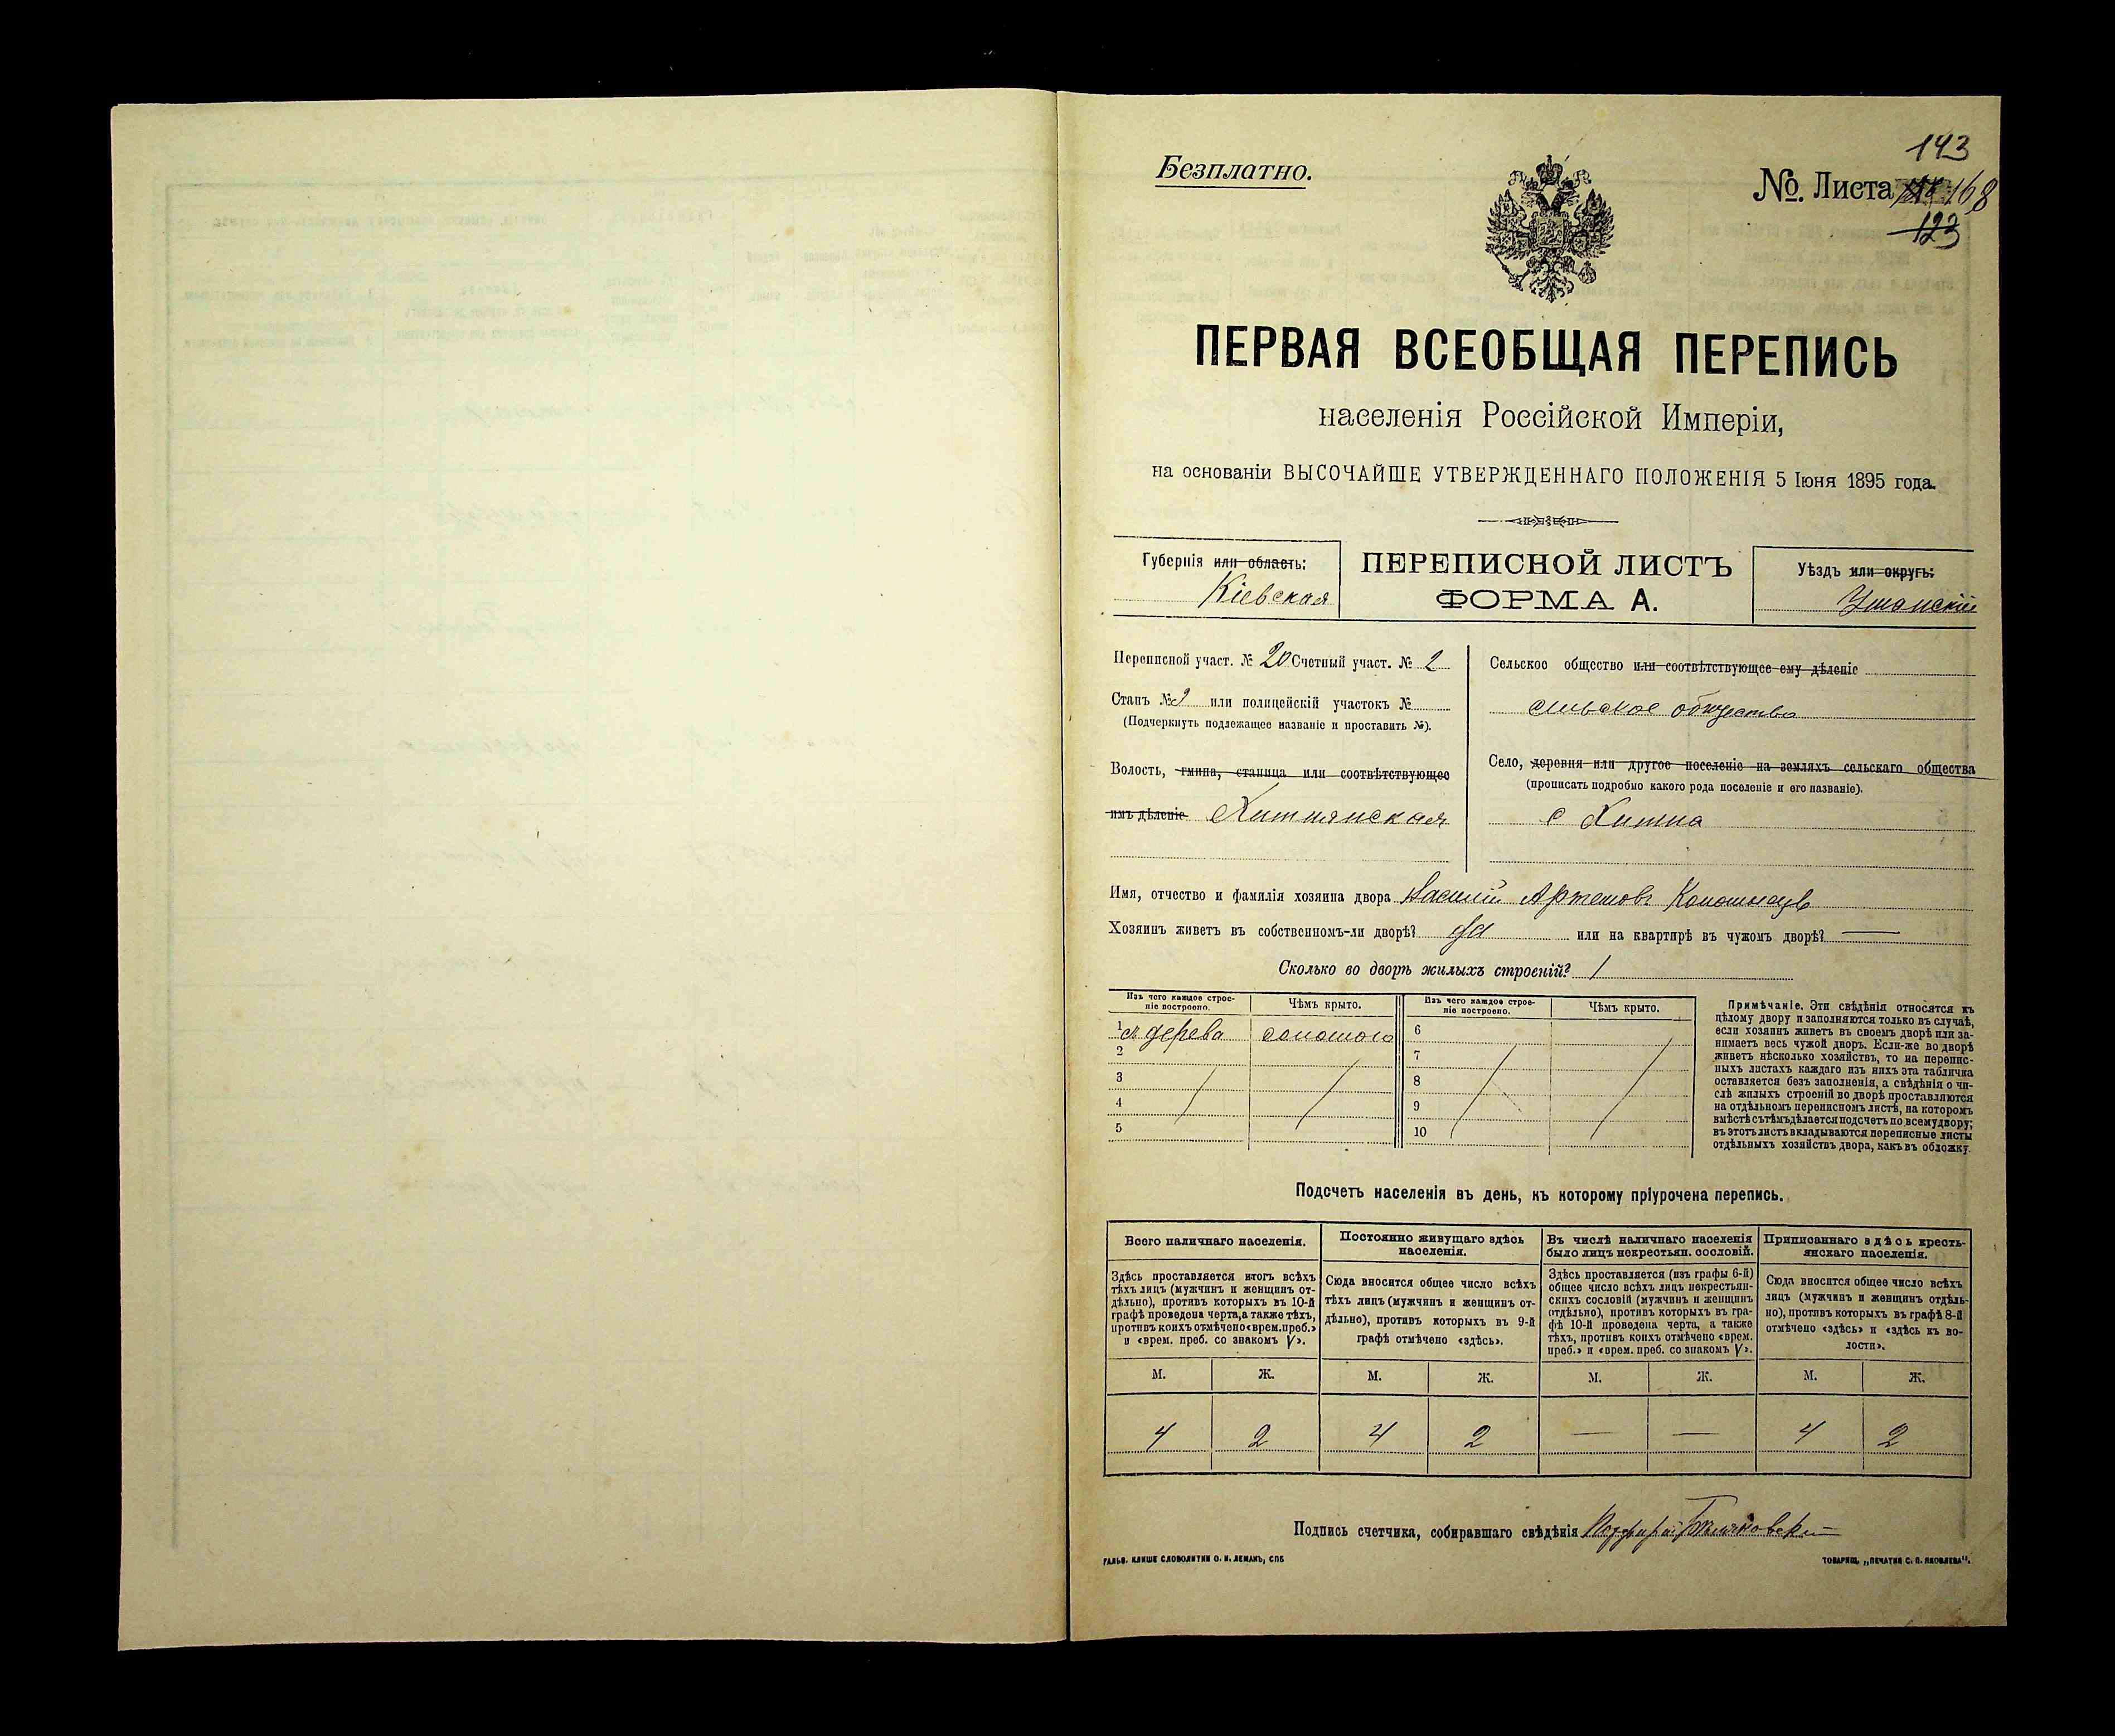 143
Безплатно.
№. Листа 168
123
ПЕРВАЯ ВСЕОБЩАЯ ПЕРЕПИСЬ
населенія Россійской Имперіи,
на основаніи ВЫСОЧАЙШЕ УТВЕРЖДЕННАГО ПОЛОЖЕНІЯ 5 Іюня 1895 года.
Губернія или область:
Кіевская
ПЕРЕПИСНОЙ ЛИСТЪ
ФОРМА А.
Уѣздъ или округъ:
Уманскій
Переписной участ. № 20 Счетный участ. № 2
Станъ № 2 или полицейскій участокъ №
(Подчеркнуть подлежащее названіе и проставить №).
Волость, гмина, станица или соотвѣтствующее
имъ дѣленіе Хитнянская
Сельское общество или соотвѣтствующее ему дѣленіе
сельское общество
Село, деревня или другое поселеніе на земляхъ сельскаго общества
(прописать подробно какого рода поселеніе и его названіе).
с Хитна
Имя, отчество и фамилія хозяина двора Василій Артемовъ
Хозяинъ живетъ въ собственномъ-ли дворѣ? да или на квартирѣ въ чужомъ дворѣ? —
Сколько во дворѣ жилыхъ строеній? 1
Изъ чего каждое строе-
ніе построено.
Чѣмъ крыто.
Изъ чего каждое строе-
ніе построено.
Чѣмъ крыто.
1 дерева соломою 6
2 7
3 8
4 9
5 10
Примѣчаніе. Эти свѣдѣнія относятся къ
цѣлому двору и заполняются только въ случаѣ,
если хозяинъ живетъ въ своемъ дворѣ или за-
нимаетъ весь чужой дворъ. Если-же во дворѣ
живетъ нѣсколько хозяйствъ, то на перепис-
ныхъ листахъ каждаго изъ нихъ эта табличка
оставляется безъ заполненія, а свѣдѣнія о чи-
слѣ жилыхъ строеній во дворѣ проставляются
на отдѣльномъ переписномъ листѣ, на которомъ
вмѣстѣ съ тѣмъ дѣлается подсчетъ по всему двору;
въ этотъ листъ вкладываются переписные листы
отдѣльныхъ хозяйствъ двора, какъ въ обложку.
Подсчетъ населенія въ день, къ которому пріурочена перепись.
Всего наличнаго населенія.
Здѣсь проставляется итогъ всѣхъ
тѣхъ лицъ (мужчинъ и женщинъ от-
дѣльно), противъ которыхъ въ 10-й
графѣ проведена черта, а также тѣхъ,
противъ коихъ отмѣчено «врем. преб.»
и «врем. преб. со знакомъ V».
Постоянно живущаго здѣсь
населенія.
Сюда вносится общее число всѣхъ
тѣхъ лицъ (мужчинъ и женщинъ от-
дѣльно), противъ которыхъ въ 9-й
графѣ отмѣчено «здѣсь».
Въ числѣ наличнаго населенія
было лицъ некрестьян. сословій.
Здѣсь проставляется (изъ графы 6-й)
общее число всѣхъ лицъ некрестьян-
скихъ сословій (мужчинъ и женщинъ
отдѣльно), противъ которыхъ въ гра-
фѣ 10-й проведена черта, а также
тѣхъ, противъ коихъ отмѣчено «врем.
преб.» и «врем. преб. со знакомъ V».
Приписаннаго здѣсь кресть-
янскаго населенія.
Сюда вносится общее число всѣхъ
лицъ (мужчинъ и женщинъ отдѣль-
но), противъ которыхъ въ графѣ 8-й
отмѣчено «здѣсь» и «здѣсь къ во-
лости».
М. Ж. М. Ж. М. Ж. М. Ж.
4 2 4 2 — — 4 2
Подпись счетчика, собиравшаго свѣдѣнія
ГАЛЬВ. КЛИШЕ СЛОВОЛИТНИ О. И. ЛЕМАНЪ, СПБ
ТОВАРИЩ. „ПЕЧАТНЯ С. П. ЯКОВЛЕВА".